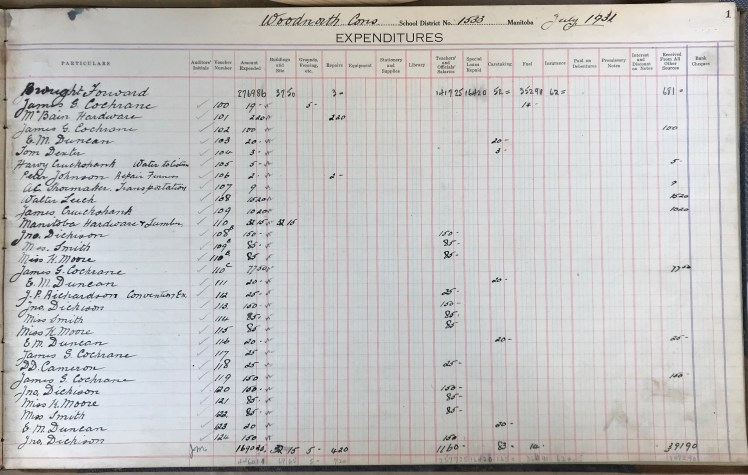 1
Woodnorth Cons School District No. 1533 Manitoba July 1931
EXPENDITURES
PARTICULARS Auditors' Initials Voucher Number Amount Expended Buildings and Site Grounds, Fencing, etc. Repairs Equipment Stationery and Supplies Library Teachers' and Officials' Salaries Special Loans Repaid Caretaking Fuel Insurance Paid on Debentures Promissory Notes Interest and Discount on Notes Received From All Other Sources Bank Charges
Brought Forward 2769 86 37 50 3 = 1419 25 164 20 52 = 352 98 62 = 681 =
James G. Cochrane 100 19 - 5 - 14 -
McBain Hardware 101 2 20 2 20
James G. Cochrane 102 100 100
E. M. Duncan 103 20 - 20 -
Tom Dexter 104 3 - 3 -
Harvy Cruickshank Water 105 5 - 5 -
Peter Johnson Repair 106 2 - 2 -
A.C. Shoemaker Transportation 107 9 9
Walter Leech 108 15 20 15 20
James Cruickshank 109 10 20 10 20
Manitoba Hardware & Lumber 110 32 15 32 15
Jno. Dickison 108B 150 - 150 -
Miss Smith 109B 85 - 85 -
Miss K. Moore 110B 85 - 85 -
James G. Cochrane 110C 77 50 77 50
E. M. Duncan 111 20 - 20 -
J. P. Richardson Convention Ex 112 25 - 25 -
Jno. Dickison 113 150 - 150 -
Miss Smith 114 85 - 85 -
Miss K Moore 115 85 - 85 -
E. M. Duncan 116 20 - 20 -
James G. Cochrane 117 25 25 -
D.D. Cameron 118 25 - 25 -
James G. Cochrane 119 150 150 -
Jno. Dickison 120 150 - 150 -
Miss K. Moore 121 85 - 85 -
Miss Smith 122 85 - 85 -
E. M. Duncan 123 20 - 20 -
Jno. Dickison 124 150 150
32 15 5 - 4 20 1160 - 83 - 14 - 391 90